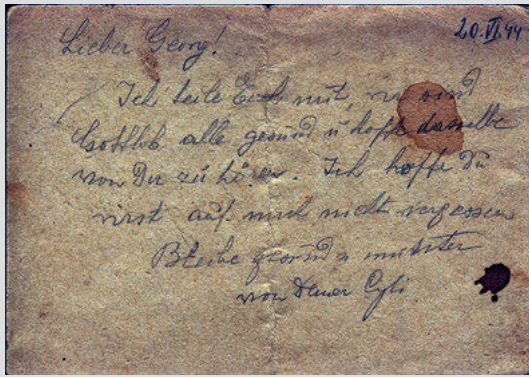 20.VI.44
Lieber Georg!
Ich teile Euch mit, wir sind
Gottlob alle gesund u hoffe dasselbe
von Dir zu hören. Ich hoffe Du
wirst auf mich nicht vergessen
Bleibe gesund u munter
von Deiner